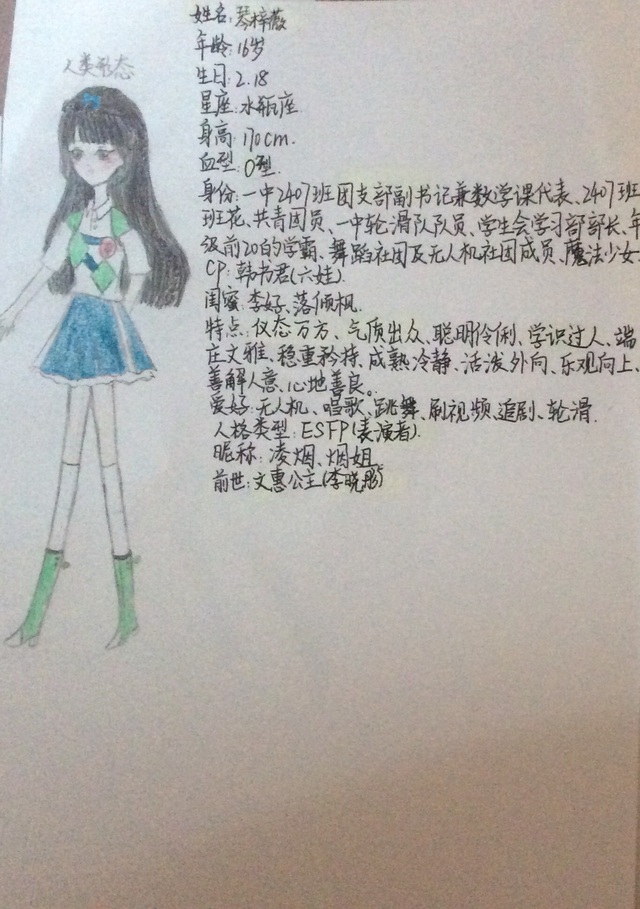 人类形态
姓名:琴梓薇
年龄:16岁
生日:2.18
星座:水瓶座
身高:170cm.
血型:O型.
身份:一中2407班团支部副书记兼数学课代表、2407班
班花、共青团员、一中轮滑队队员、学生会学习部部长、年
级前20的学霸、舞蹈社团及无人机社团成员、魔法少女.
CP:韩书君(六娃).
闺蜜:李好、落倾枫.
特点:仪态万方、气质出众、聪明伶俐、学识过人、端
庄文雅、稳重矜持、成熟冷静、活泼外向、乐观向上、
善解人意、心地善良。
爱好:无人机、唱歌、跳舞、刷视频、追剧、轮滑.
人格类型:ESFP(表演者).
昵称:凌烟、烟姐
前世:文惠公主(李晓彤)